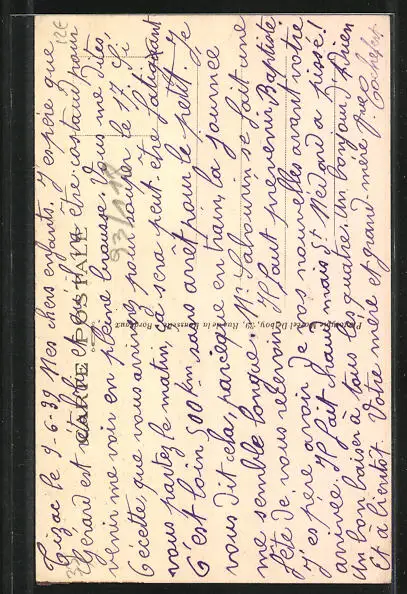 Tizac le 9-6-39 Mes chers enfants. J'espère que
Gérard est rétabli et pourra être costaud pour
venir me voir en pleine brousse. Vous me dites,
Cécette, que vous arrivez pour goûter le 17. Si
vous partez le matin ça sera peut-être fatiguant
C'est loin 500 km sans arrêt pour le petit. Je
vous dit cela, parce que en train, la journée
me semble longue. Mr Labourin se fait une
fête de vous recevoir. Il faut prévenir Baptiste
J'espère avoir de vos nouvelles avant votre
arrivée. Il fait chaud mais St Médard a pissé!
Un bon baiser à tous les quatre. Un bonjour d'Adrien
Et à bientôt. Votre mère et grand-mère
CARTE POSTALE
Marcel Delboy, Bordeaux
12€